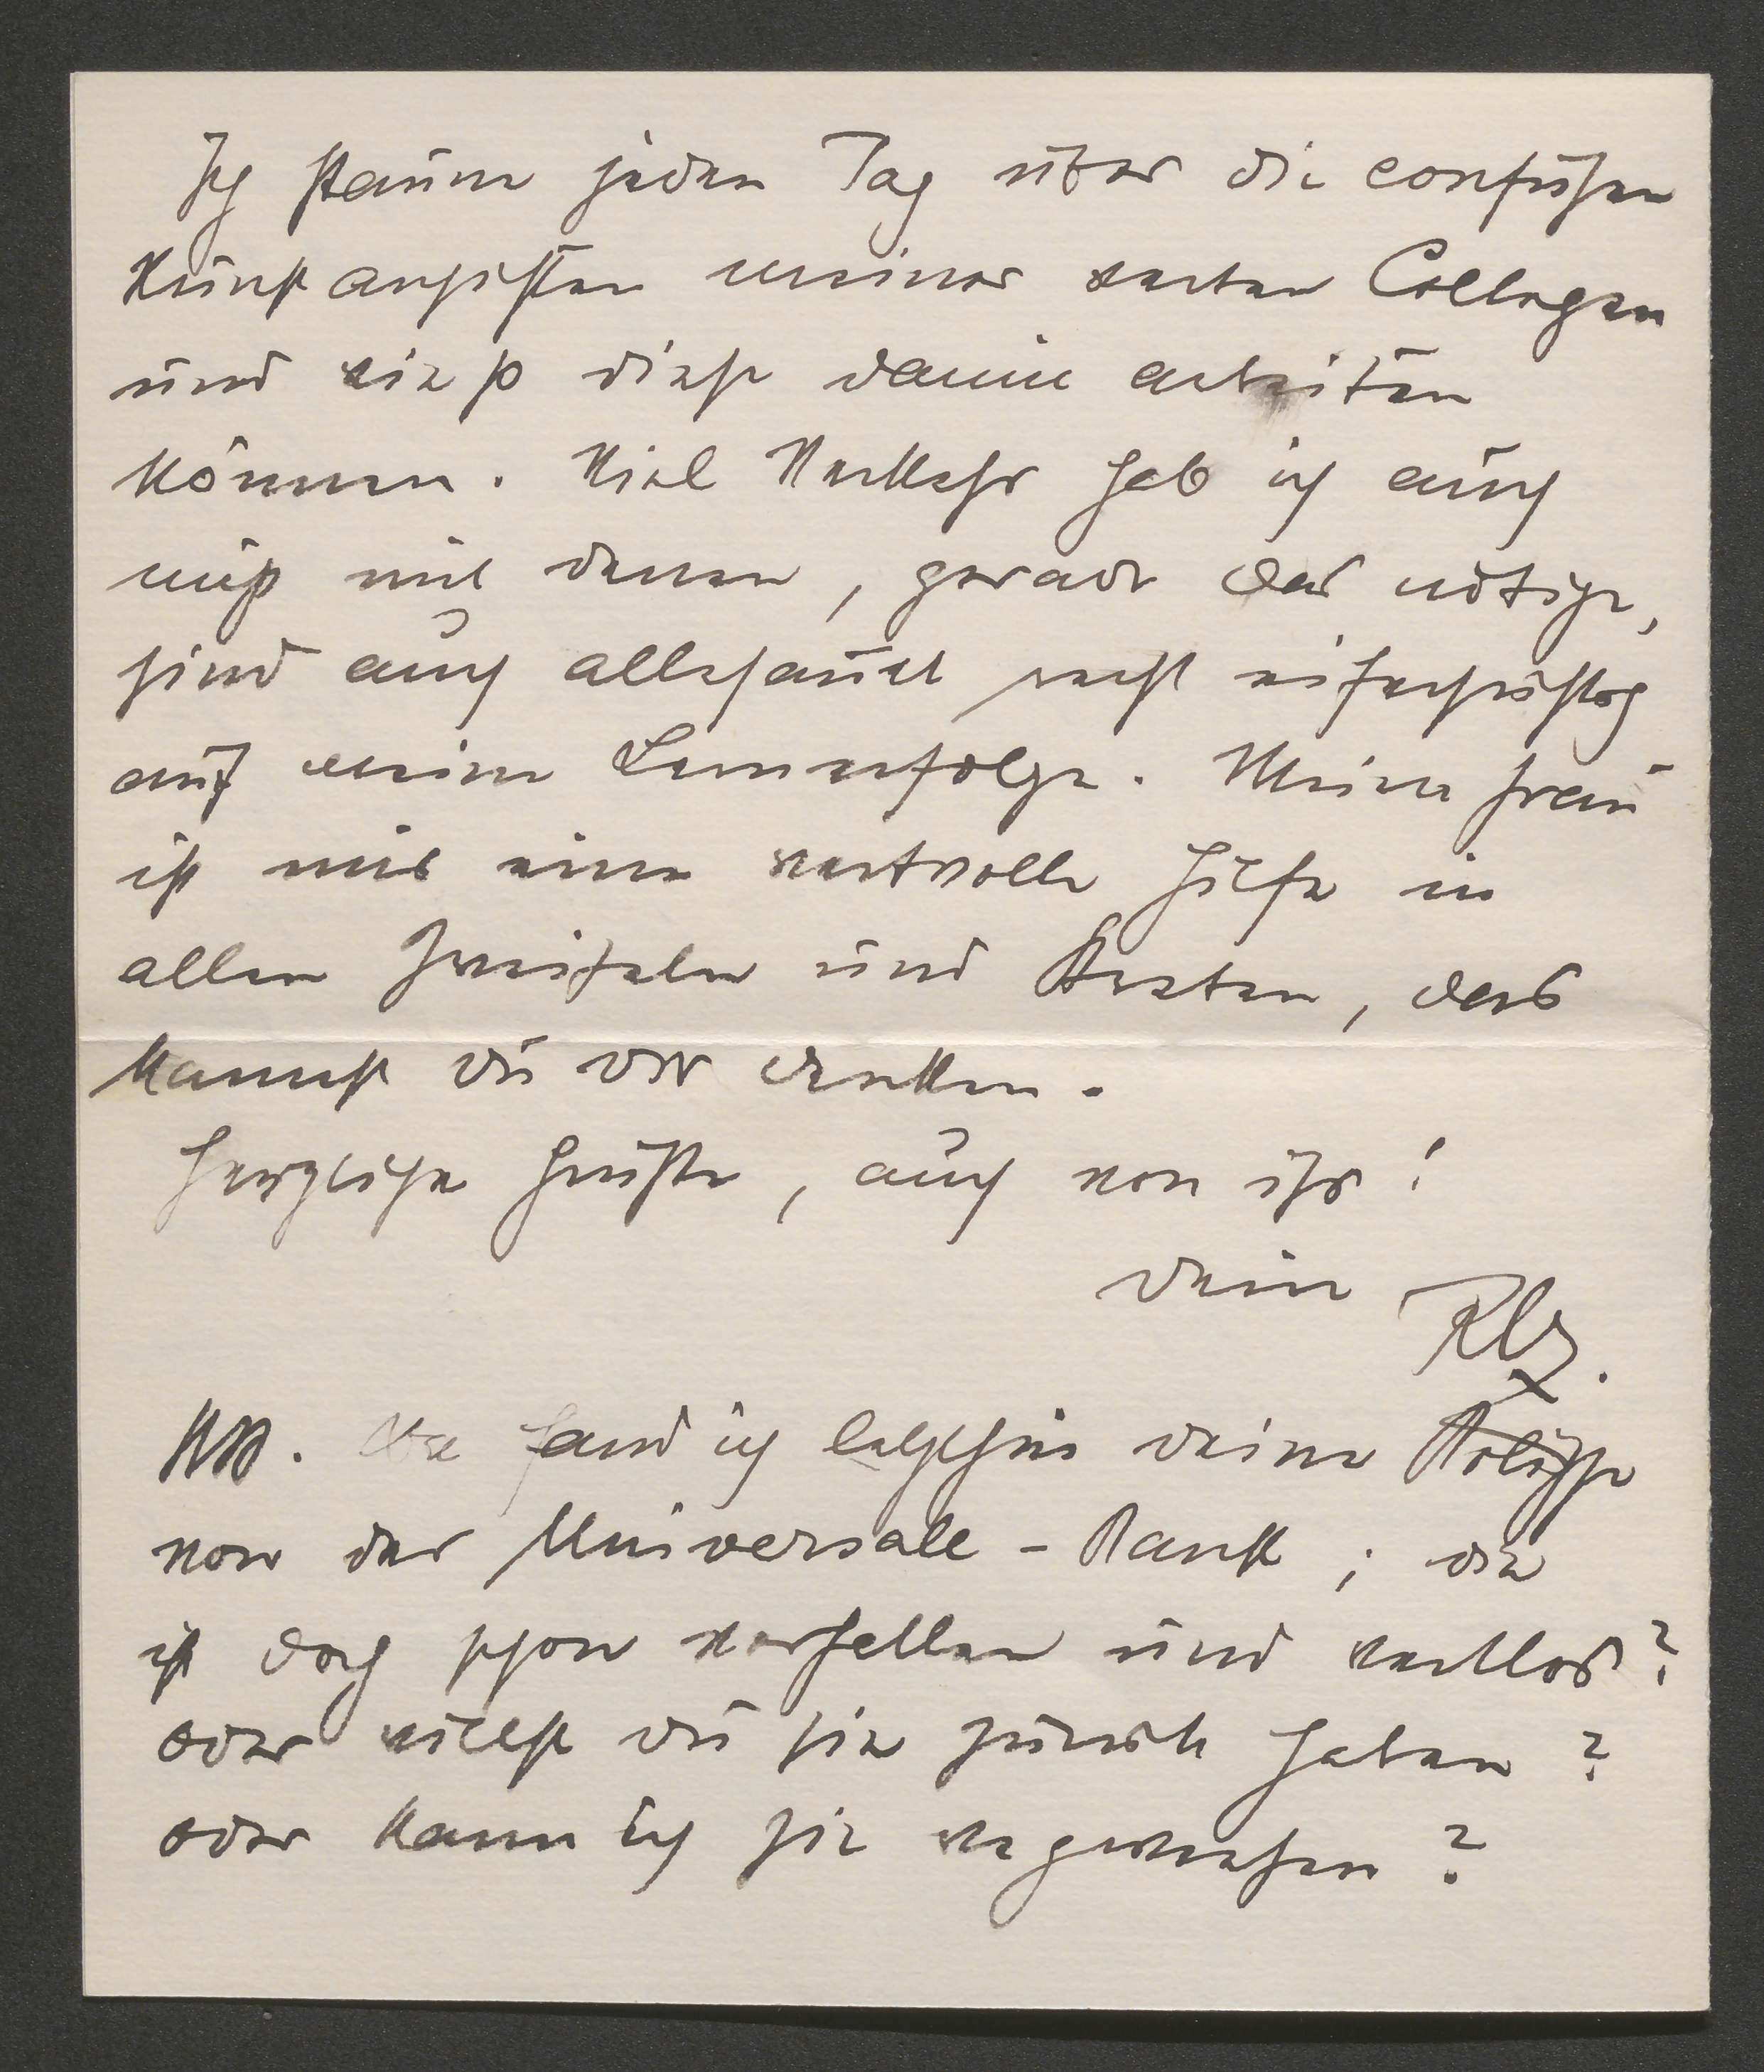 Ich staune jeden Tag über die confusen
Kunstansichten meiner werten Collegen
und wie so diese damit arbeiten
können. Viel Verkehr hab ich auch
nicht mit denen, gerade das nötige,
sind auch allesamt recht eifersüchtig
auf meine Lernerfolge. Meine Frau
ist mir eine wertvolle Hilfe in
allen Zweifeln und Arbeiten, das
kannst du dir denken.
Herzliche Grüße, auch von ihr!
dein Rbz.
NB. Da fand ich letzthin deine Polizze
von der Universale-Bank; die
ist doch schon verfallen und wertlos?
oder willst du sie zurück haben?
oder kann ich sie wegwerfen?